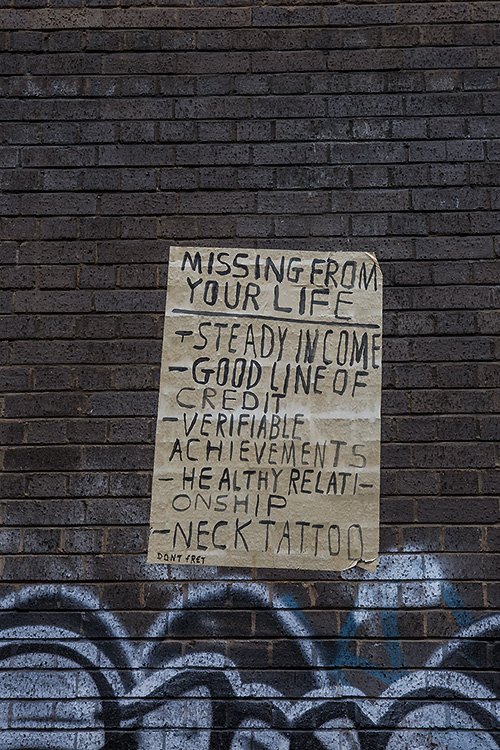 MISSING FROM
YOUR LIFE
-STEADY INCOME
-GOOD LINE OF
CREDIT
-VERIFIABLE
ACHIEVEMENTS
-HEALTHY RELATI-
ONSHIP
-NECK TATTOO
DONT FRET